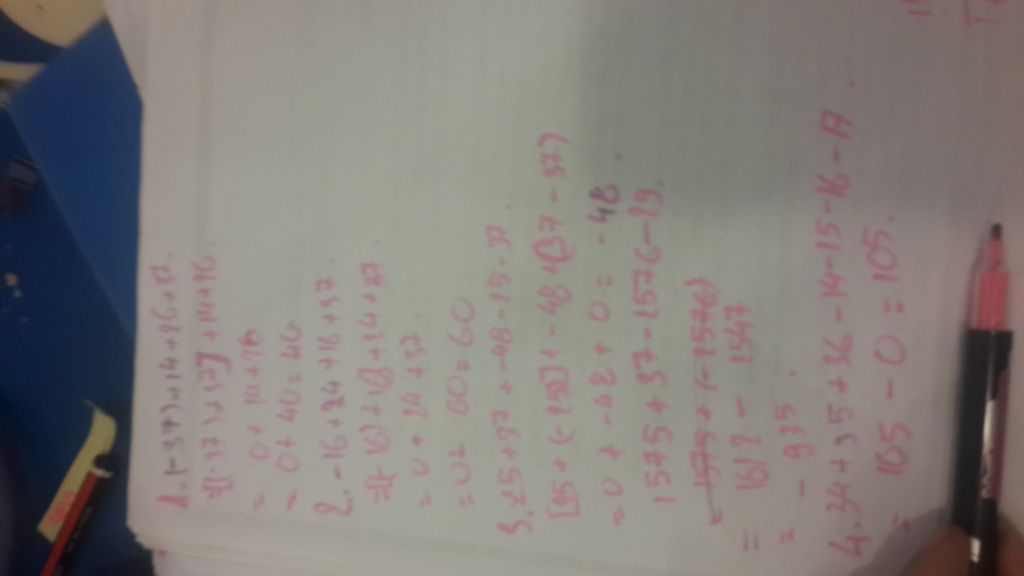 1. (-37) + 14 + 26 + 37.
=[(-37) + 37] + 14 + 26.
= 0 + 14 + 26
= 0 + 40 = 40
2. -16 + 24 + 16 + 37.
=[(-16) + 16] + 24 + 37.
= 0 + 24 + 37.
= 0 + 60 = 60
3. 25 + 37 + -48 - 25 - 37.
[25 + (-25)] + -48 + (37 - 37)
= 0 + -48 + 0 = -48.
1575 + 37 - 1576 - 29.
1575 + (-1576)
= 1612 - 1547
= - 935.
4. 34 + 35 + 36 - 14 - 15 - 16 - 17.
= 105 - 0 = 105.